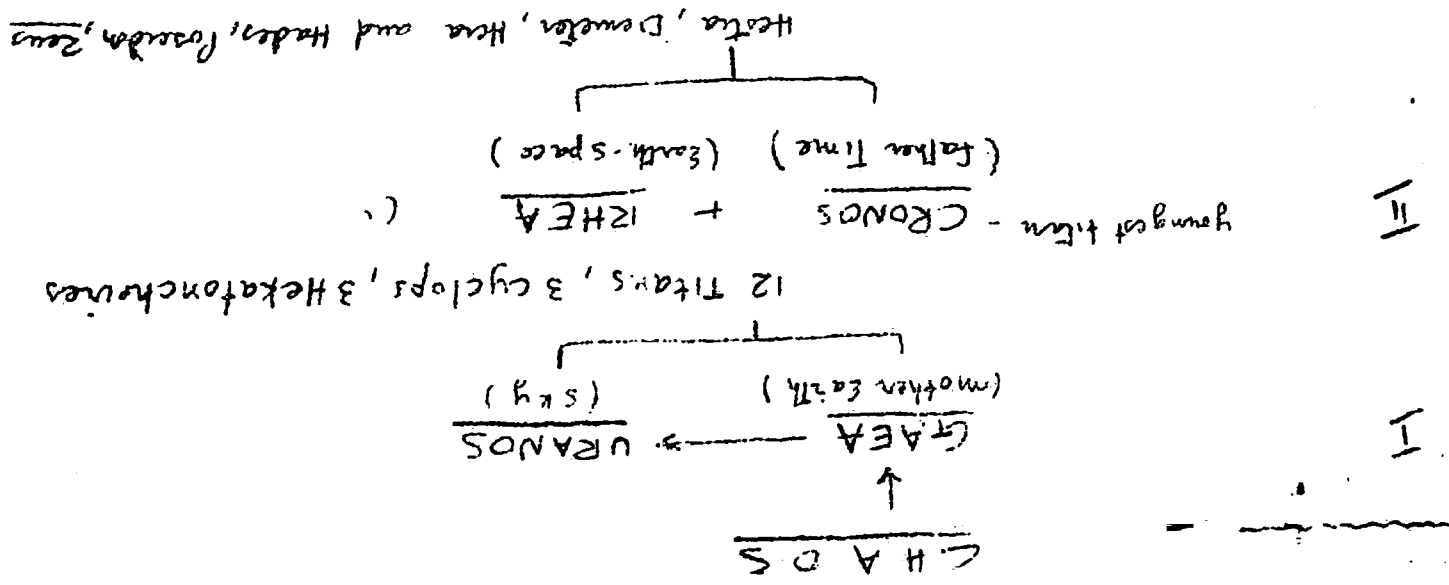 CHAOS
↓
I GAEA → URANOS
(mother Earth) (sky)
12 Titans, 3 cyclops, 3 Hekatoncheires
II youngest titan - CRONOS + RHEA (
(Father Time) (Earth-space)
Hestia, Demeter, Hera and Hades, Poseidon, Zeus